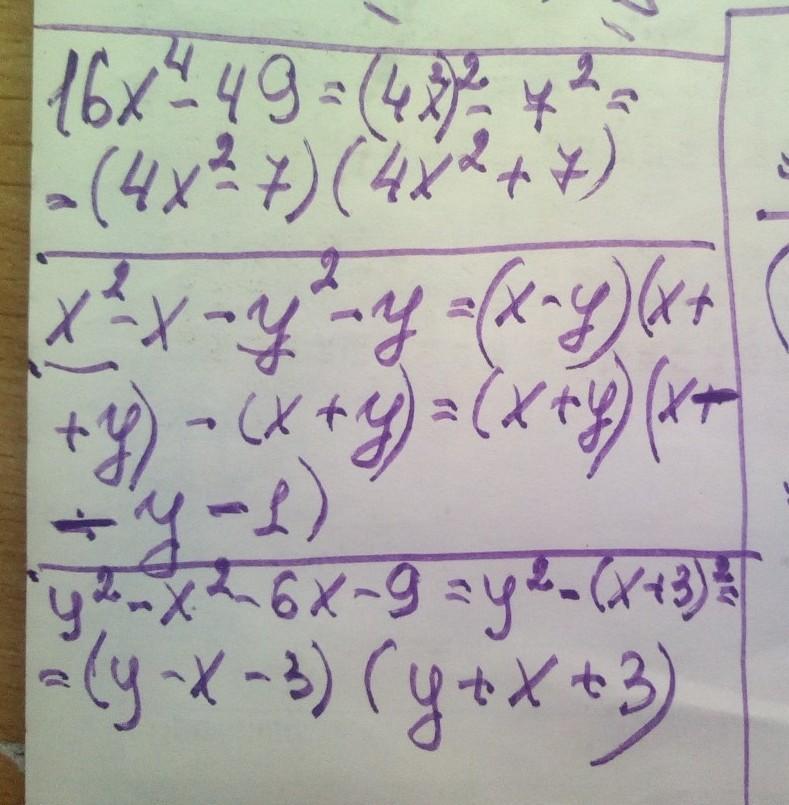 16x⁴ - 49 = (4x²)² - 7² =
= (4x² - 7)(4x² + 7)
x² - x - y² - y = (x - y)(x +
+ y) - (x + y) = (x + y)(x -
- y - 1)
y² - x² - 6x - 9 = y² - (x + 3)² =
= (y - x - 3)(y + x + 3)